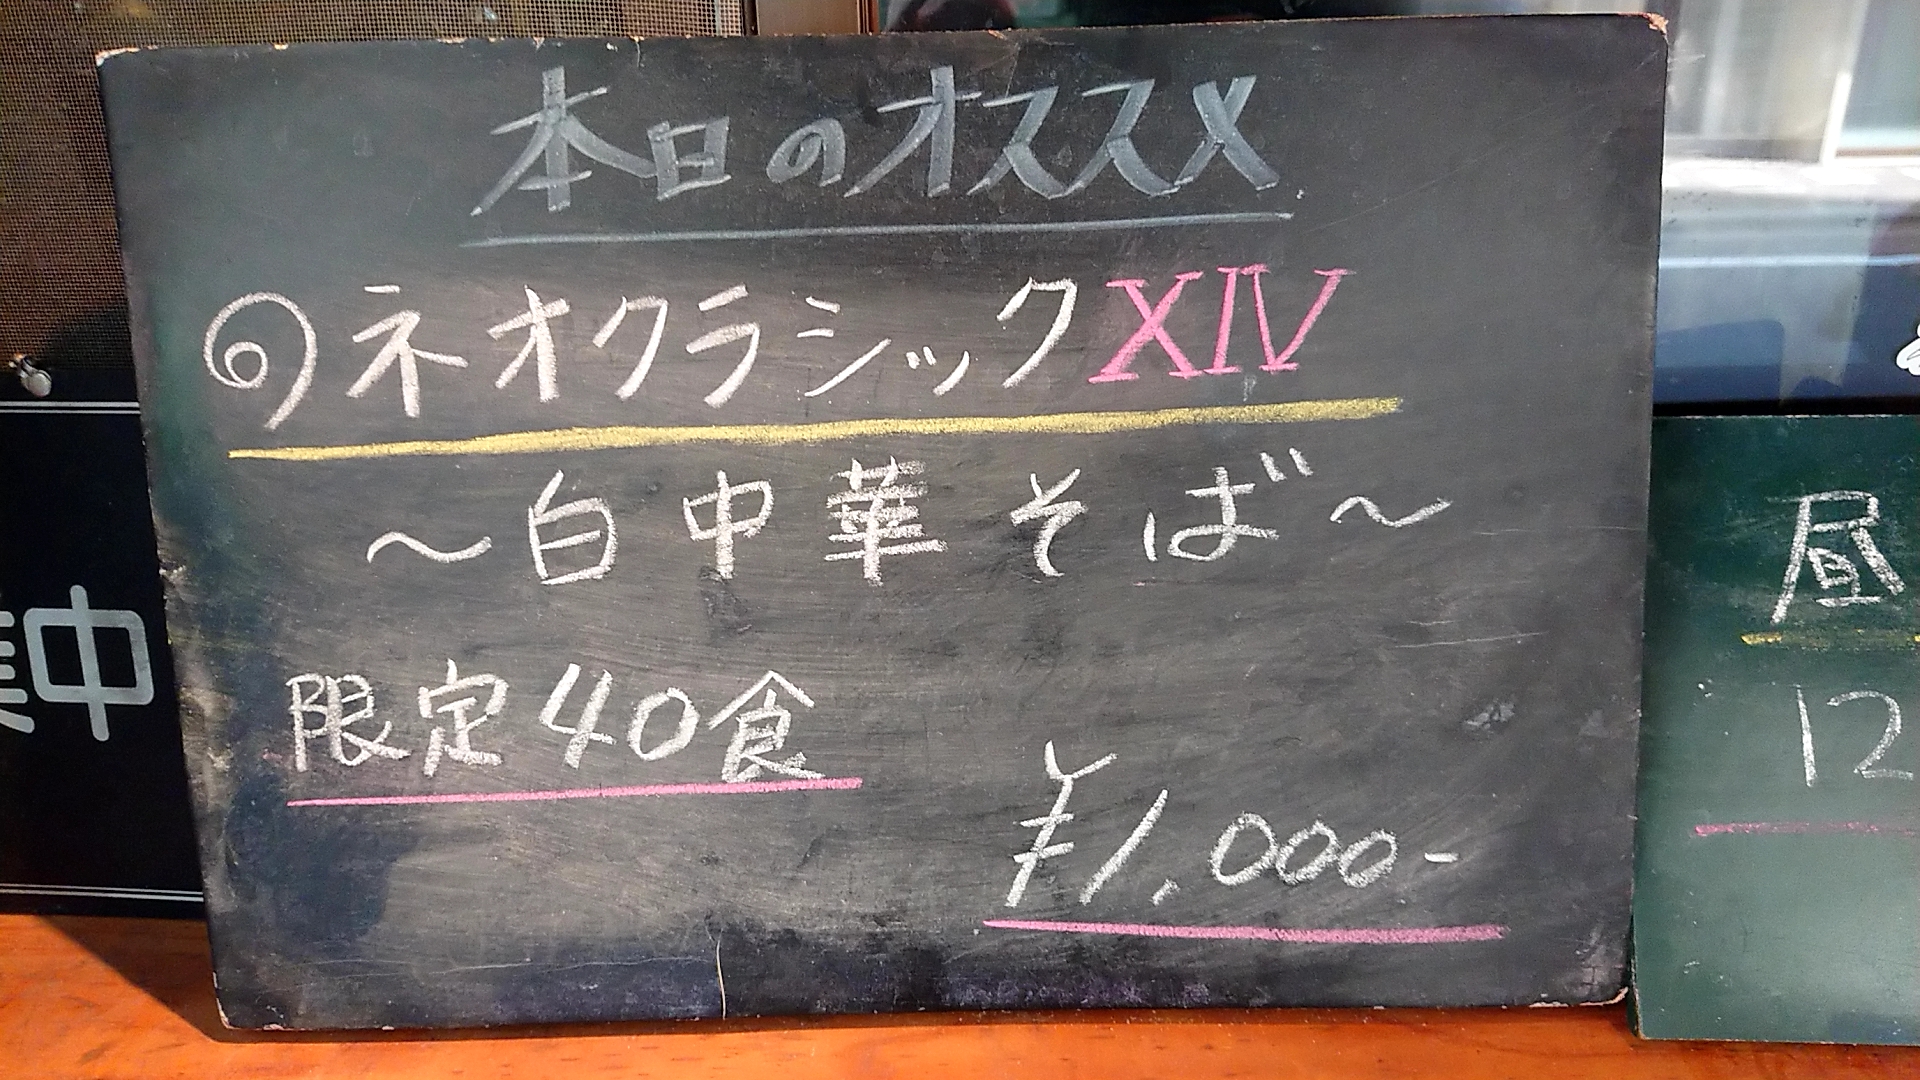 本日のオススメ
ネオクラシックXIV
～白中華そば～
限定40食
¥1,000-
中
昼
12